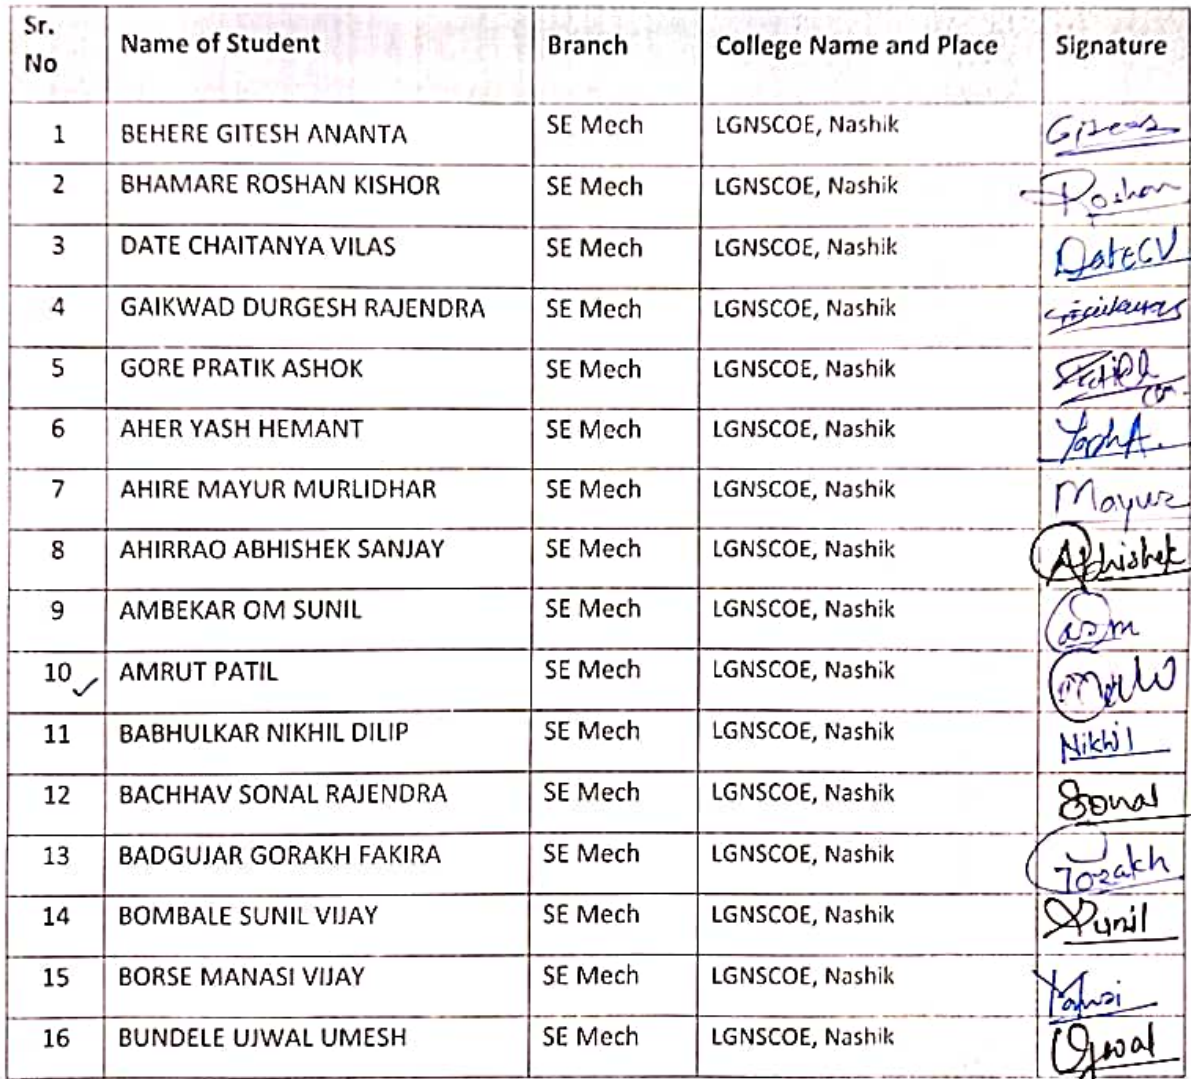 Sr. No Name of Student Branch College Name and Place Signature
1 BEHERE GITESH ANANTA SE Mech LGNSCOE, Nashik
2 BHAMARE ROSHAN KISHOR SE Mech LGNSCOE, Nashik Roshan
3 DATE CHAITANYA VILAS SE Mech LGNSCOE, Nashik DateCV
4 GAIKWAD DURGESH RAJENDRA SE Mech LGNSCOE, Nashik
5 GORE PRATIK ASHOK SE Mech LGNSCOE, Nashik
6 AHER YASH HEMANT SE Mech LGNSCOE, Nashik YashA.
7 AHIRE MAYUR MURLIDHAR SE Mech LGNSCOE, Nashik Mayur
8 AHIRRAO ABHISHEK SANJAY SE Mech LGNSCOE, Nashik Abhishek
9 AMBEKAR OM SUNIL SE Mech LGNSCOE, Nashik
10 AMRUT PATIL SE Mech LGNSCOE, Nashik
11 BABHULKAR NIKHIL DILIP SE Mech LGNSCOE, Nashik Nikhil
12 BACHHAV SONAL RAJENDRA SE Mech LGNSCOE, Nashik Sonal
13 BADGUJAR GORAKH FAKIRA SE Mech LGNSCOE, Nashik Gorakh
14 BOMBALE SUNIL VIJAY SE Mech LGNSCOE, Nashik Sunil
15 BORSE MANASI VIJAY SE Mech LGNSCOE, Nashik
16 BUNDELE UJWAL UMESH SE Mech LGNSCOE, Nashik Ujwal